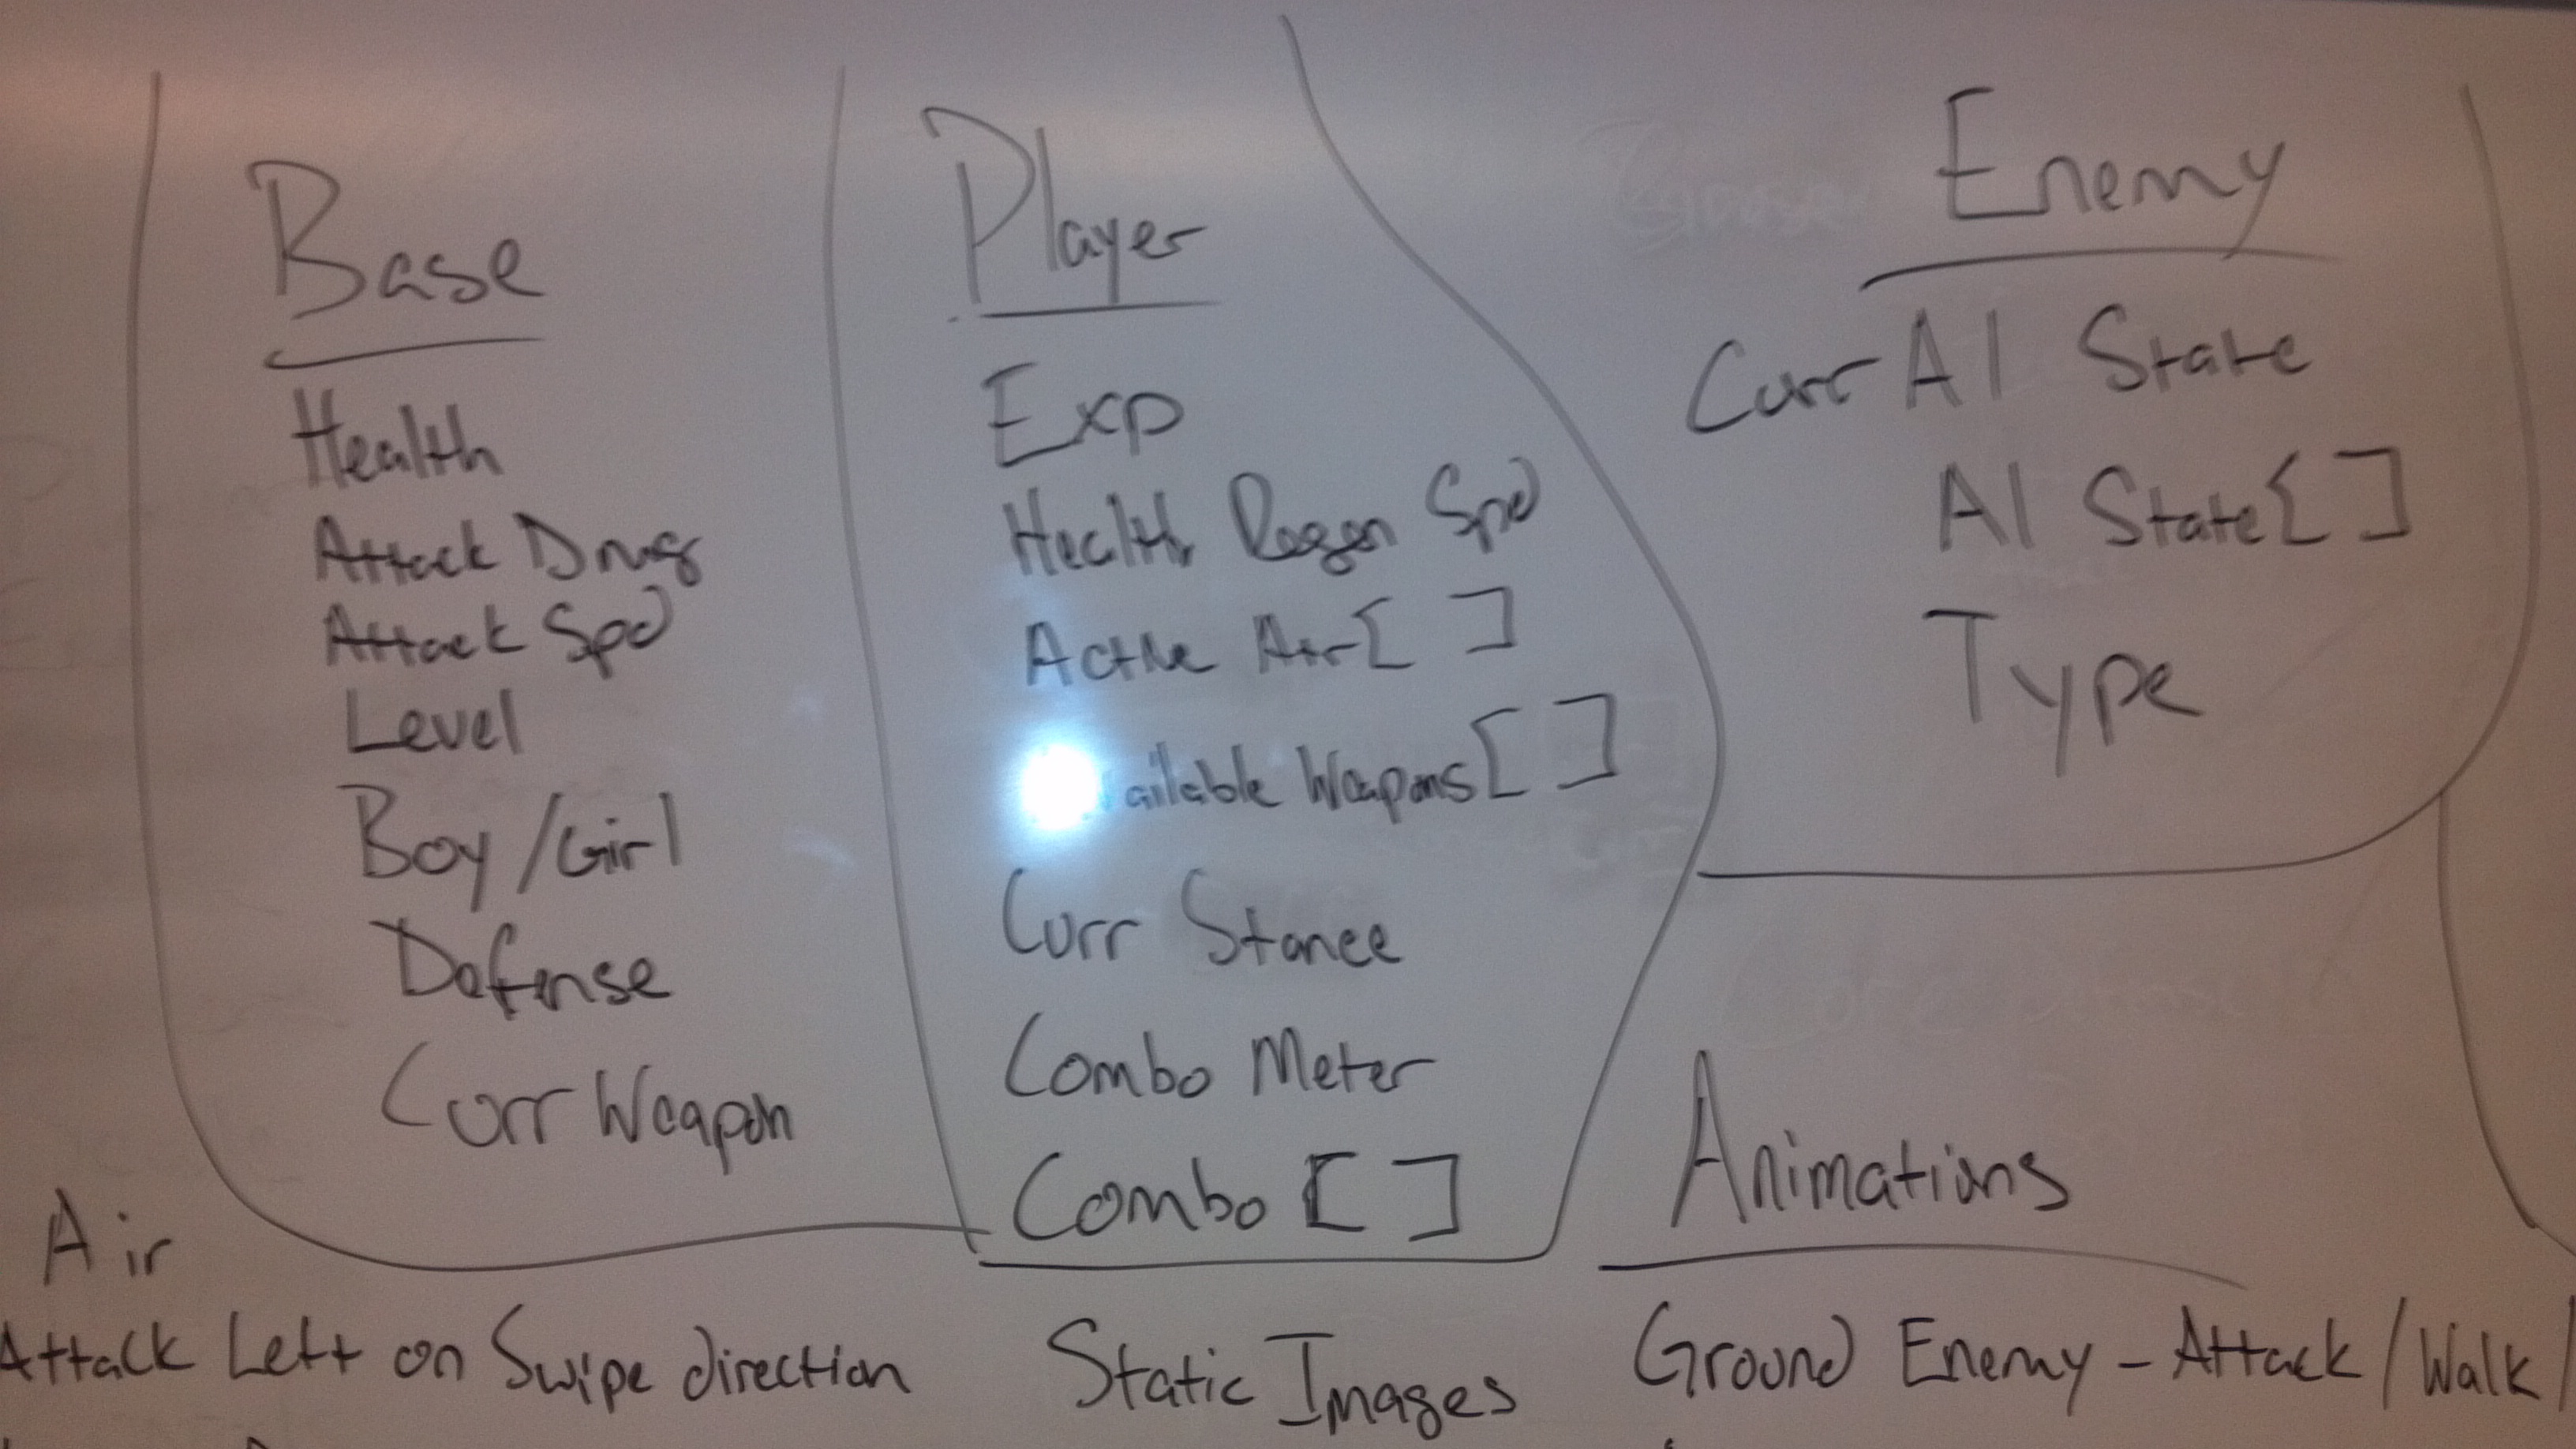 Base
Health
Attack Dmg
Attack Spd
Level
Boy/Girl
Defense
Curr Weapon
Player
Exp
Health Regen Spd
Active Air[ ]
ailable Weapons[ ]
Curr Stance
Combo Meter
Combo [ ]
Enemy
Curr AI State
AI State[ ]
Type
Air
Attack Left on Swipe direction
Static Images
Animations
Ground Enemy - Attack/Walk/